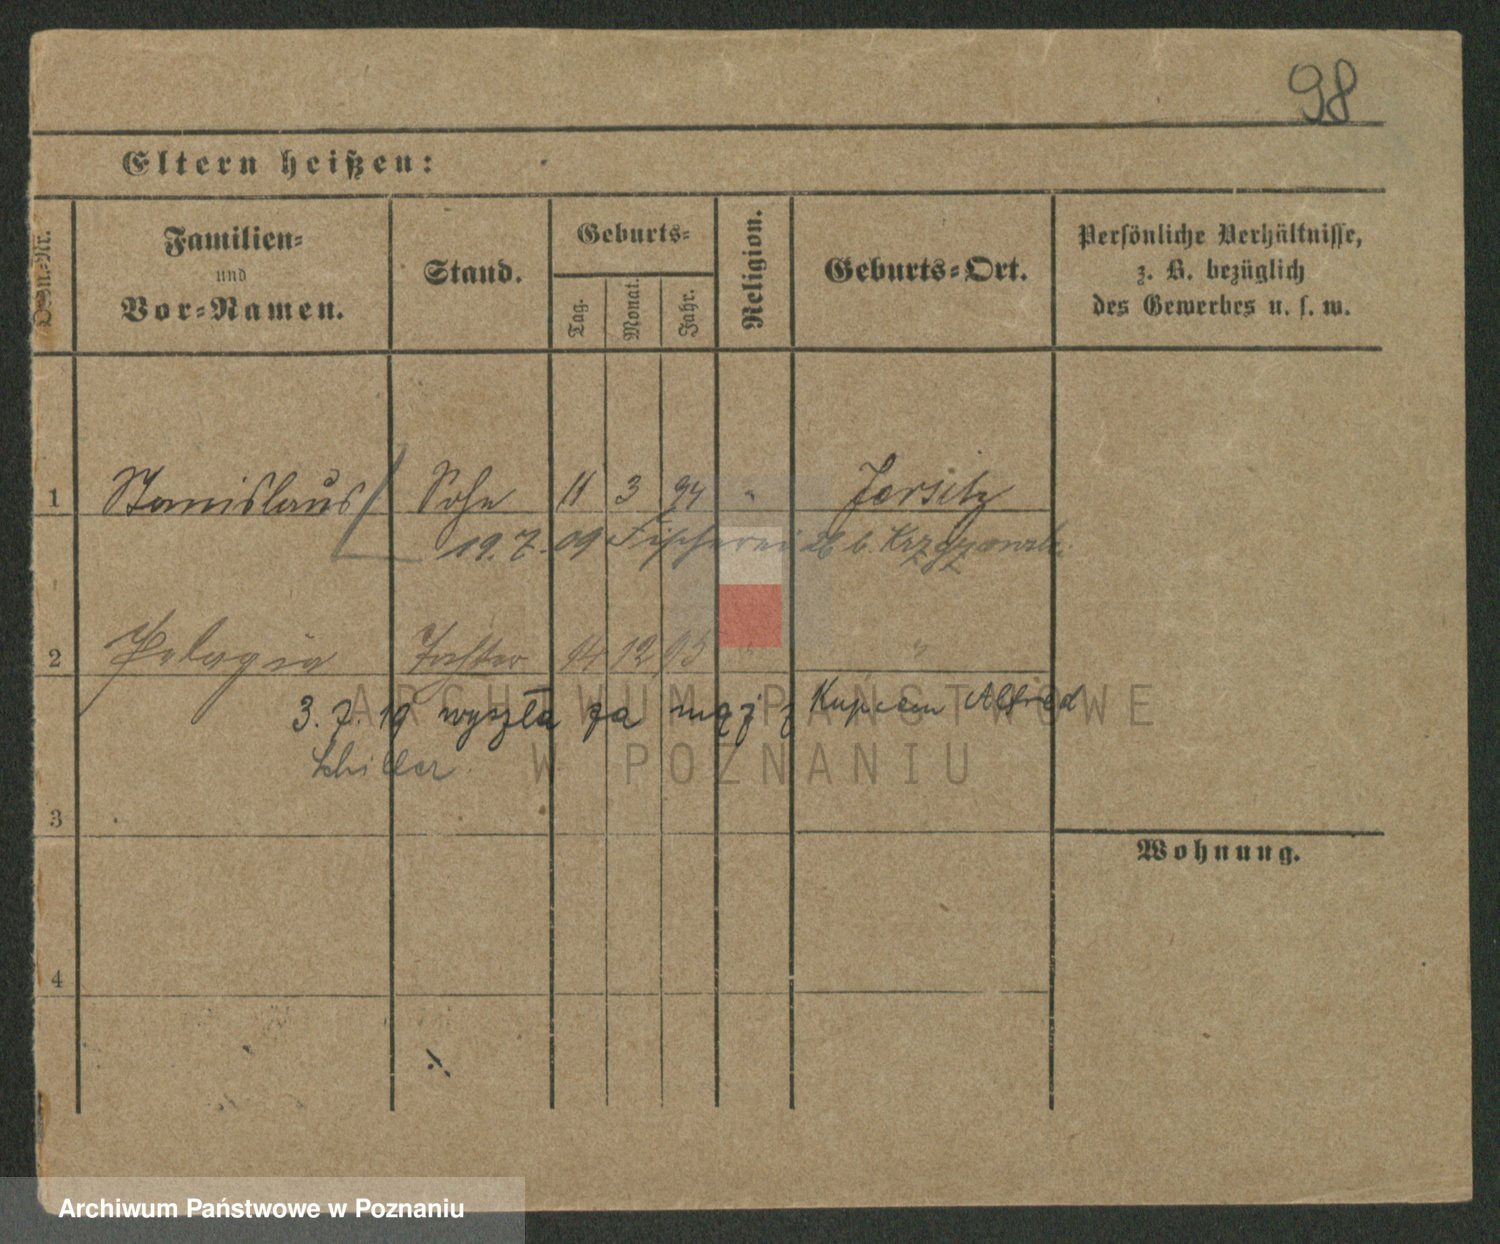 98
Eltern heißen:
Ordn.-Nr.
Familien-
und
Vor-Namen.
Stand.
Geburts-
Tag.
Monat.
Jahr.
Religion.
Geburts-Ort.
Persönliche Verhältnisse,
z. B. bezüglich
des Gewerbes u. s. w.
1 Stanislaus Sohn 11 3 94 " Jersitz
19. 7. 09 Fischerei 26 b.
2 Pelagia Tochter 14 12 95 " "
3. 7. 19 wyszła za mąż z Kupcem Alfred
Schiller.
3
Wohnung.
4
ARCHIWUM PAŃSTWOWE
W POZNANIU
Archiwum Państwowe w Poznaniu